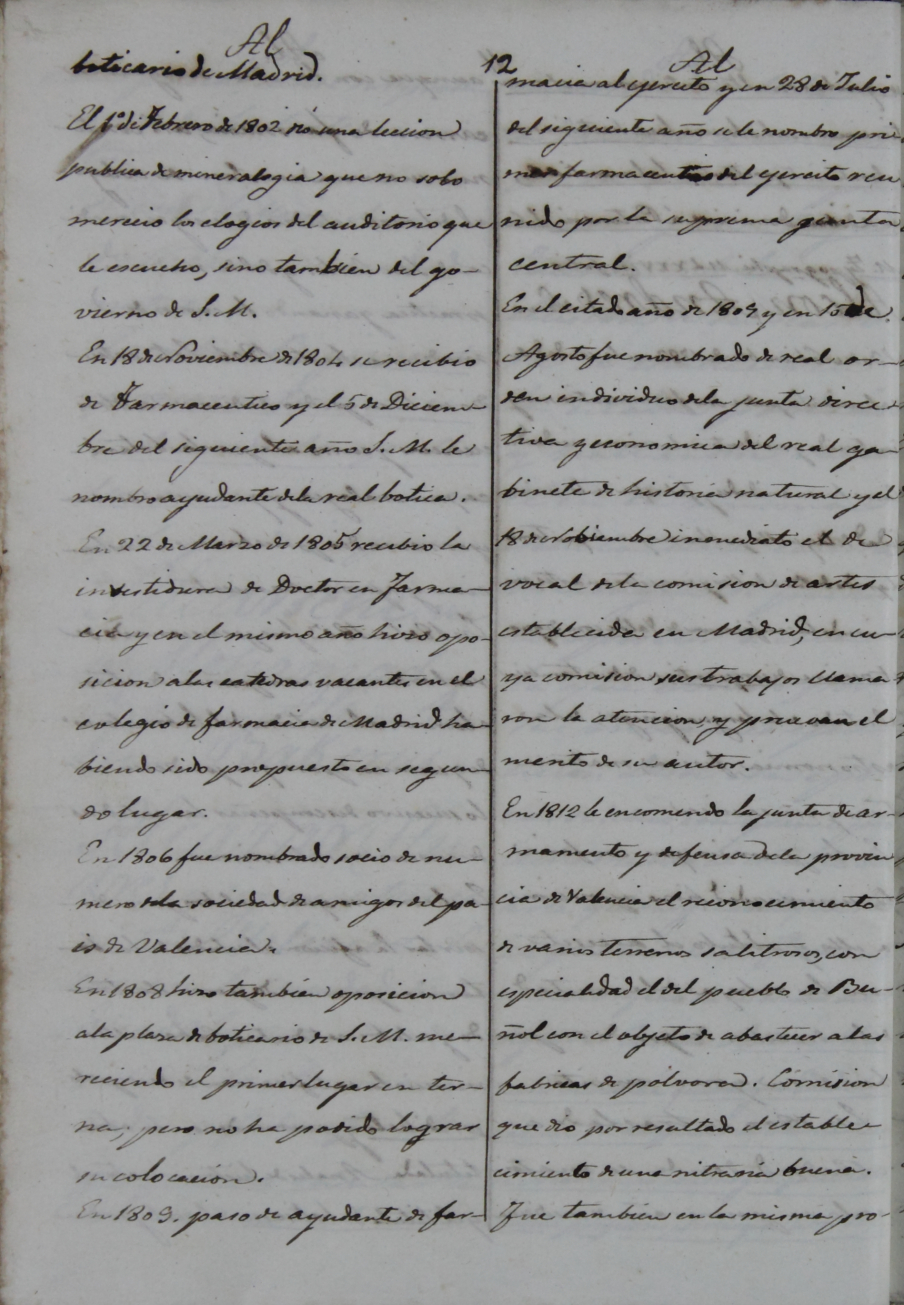 Al
boticario de Madrid.
El 1º de Febrero de 1802 dió una leccion
publica de mineralogia que no solo
merecio los elogios del auditorio que
le escucho, sino tambien del go-
vierno de S. M.
En 18 de Noviembre de 1804 se recibio
de Farmaceutico y el 5 de Diciem-
bre del siguiente año S. M. le
nombro ayudante de la real botica.
En 22 de Marzo de 1805 recibio la
investidura de Doctor en Farma-
cia y en el mismo año hizo opo-
sicion a las catedras vacantes en el
colegio de farmacia de Madrid, ha-
biendo sido propuesto en segun-
do lugar.
En 1806 fue nombrado socio de nu-
mero de la sociedad de amigos del pa-
is de Valencia.
En 1808 hizo tambien oposicion
a la plaza de boticario de S. M. me-
reciendo el primer lugar en ter-
na; pero no ha podido lograr
su colocacion.
En 1809. paso de ayudante de far-
12
Al
macia al ejercito y en 28 de Julio
del siguiente año se le nombro pri-
mer farmaceutico del ejercito reu
nido por la suprema gunta
central.
En el citado año de 1809 y en 15 de
Agosto fue nombrado de real or-
den individuo de la junta direc-
tiva y economica del real ga-
binete de historia natural y el
18 de Nobiembre inmediato el de
vocal de la comision de artes
establecida en Madrid, en cu-
ya comision sus trabajos llama
ron la atencion y pruevan el
merito de su autor.
En 1812 le encomendo la junta de ar-
mamento y defensa de la provin
cia de Valencia el reconocimiento
de varios terrenos salitrosos, con
especialidad el del pueblo de Bu-
ñol con el objeto de abastecer a las
fabricas de polvora. Comision
que dio por resultado el estable-
cimiento de una nitraria buena.
Fue tambien en la misma pro-